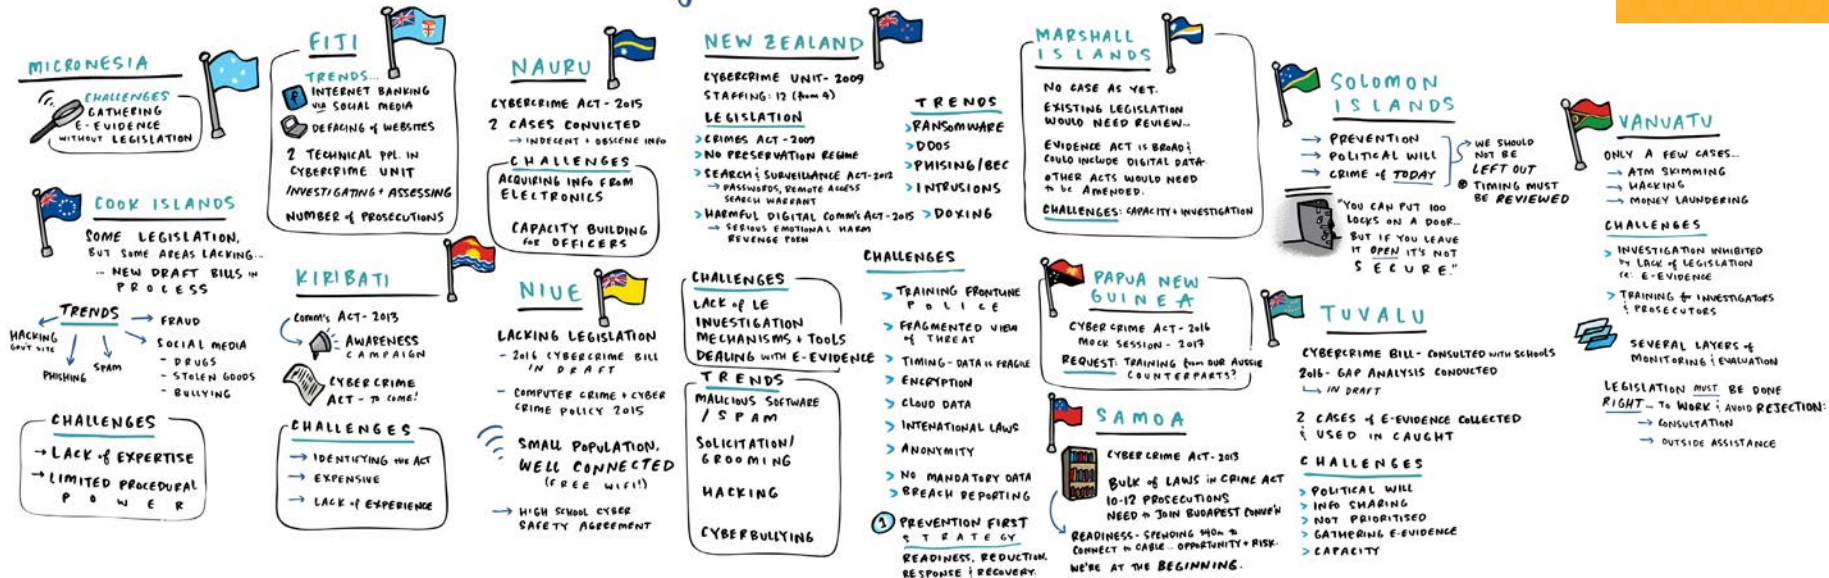 MICRONESIA
CHALLENGES
GATHERING
E-EVIDENCE
WITHOUT LEGISLATION
COOK ISLANDS
SOME LEGISLATION,
BUT SOME AREAS LACKING...
... NEW DRAFT BILLS IN
PROCESS
TRENDS
HACKING
GOV'T SITE
PHISHING
SPAM
→ FRAUD
SOCIAL MEDIA
- DRUGS
- STOLEN GOODS
- BULLYING
CHALLENGES
→ LACK of EXPERTISE
→ LIMITED PROCEDURAL
POWER
FIJI
TRENDS...
INTERNET BANKING
VIA SOCIAL MEDIA
DEFACING of WEBSITES
2 TECHNICAL PPL. IN
CYBERCRIME UNIT
INVESTIGATING + ASSESSING
NUMBER of PROSECUTIONS
KIRIBATI
Comm's ACT - 2013
AWARENESS
CAMPAIGN
CYBERCRIME
ACT - TO COME!
CHALLENGES
→ IDENTIFYING the ACT
→ EXPENSIVE
→ LACK of EXPERIENCE
NAURU
CYBERCRIME ACT - 2015
2 CASES CONVICTED
→ INDECENT + OBSCENE INFO
CHALLENGES
ACQUIRING INFO FROM
ELECTRONICS
CAPACITY BUILDING
for OFFICERS
NIUE
LACKING LEGISLATION
- 2016 CYBERCRIME BILL
IN DRAFT
- COMPUTER CRIME + CYBER
CRIME POLICY 2015
SMALL POPULATION,
WELL CONNECTED
(FREE WIFI!)
→ HIGH SCHOOL CYBER
SAFETY AGREEMENT
NEW ZEALAND
CYBERCRIME UNIT - 2009
STAFFING: 12 (from 4)
LEGISLATION
> CRIMES ACT - 2009
> NO PRESERVATION REGIME
> SEARCH & SURVEILLANCE ACT - 2012
→ PASSWORDS, REMOTE ACCESS
SEARCH WARRANT
> HARMFUL DIGITAL Comm's ACT - 2015
→ SERIOUS EMOTIONAL HARM
REVENGE PORN
TRENDS
> RANSOMWARE
> DDOS
> PHISING/BEC
> INTRUSIONS
> DOXING
CHALLENGES
LACK of LE
INVESTIGATION
MECHANISMS + TOOLS
DEALING WITH E-EVIDENCE
TRENDS
MALICIOUS SOFTWARE
/ SPAM
SOLICITATION/
GROOMING
HACKING
CYBERBULLYING
CHALLENGES
> TRAINING FRONTLINE
POLICE
> FRAGMENTED VIEW
of THREAT
> TIMING - DATA IS FRAGILE
> ENCRYPTION
> CLOUD DATA
> INTENATIONAL LAWS
> ANONYMITY
> NO MANDATORY DATA
> BREACH REPORTING
1 PREVENTION FIRST
STRATEGY
READINESS, REDUCTION,
RESPONSE & RECOVERY.
MARSHALL
ISLANDS
NO CASE AS YET.
EXISTING LEGISLATION
WOULD NEED REVIEW...
EVIDENCE ACT IS BROAD &
COULD INCLUDE DIGITAL DATA.
OTHER ACTS WOULD NEED
to be AMENDED.
CHALLENGES: CAPACITY + INVESTIGATION
PAPUA NEW
GUINEA
CYBER CRIME ACT - 2016
MOCK SESSION - 2017
REQUEST: TRAINING from OUR AUSSIE
COUNTERPARTS?
SAMOA
CYBER CRIME ACT - 2013
BULK of LAWS in CRIME ACT
10-12 PROSECUTIONS
NEED to JOIN BUDAPEST
READINESS - SPENDING $40m to
CONNECT to CABLE... OPPORTUNITY + RISK.
WE'RE AT THE BEGINNING.
SOLOMON
ISLANDS
→ PREVENTION
→ POLITICAL WILL
→ CRIME of TODAY
WE SHOULD
NOT BE
LEFT OUT
TIMING MUST
BE REVIEWED
"YOU CAN PUT 100
LOCKS ON A DOOR...
BUT IF YOU LEAVE
IT OPEN IT'S NOT
SECURE."
TUVALU
CYBERCRIME BILL - CONSULTED WITH SCHOOLS
2016 - GAP ANALYSIS CONDUCTED
IN DRAFT
2 CASES of E-EVIDENCE COLLECTED
& USED IN CAUGHT
CHALLENGES
> POLITICAL WILL
> INFO SHARING
> NOT PRIORITISED
> GATHERING E-EVIDENCE
> CAPACITY
VANUATU
ONLY A FEW CASES...
→ ATM SKIMMING
→ HACKING
→ MONEY LAUNDERING
CHALLENGES
> INVESTIGATION INHIBITED
by LACK of LEGISLATION
re: E-EVIDENCE
> TRAINING for INVESTIGATORS
& PROSECUTORS
SEVERAL LAYERS of
MONITORING & EVALUATION
LEGISLATION MUST BE DONE
RIGHT - TO WORK & AVOID REJECTION:
→ CONSULTATION
→ OUTSIDE ASSISTANCE